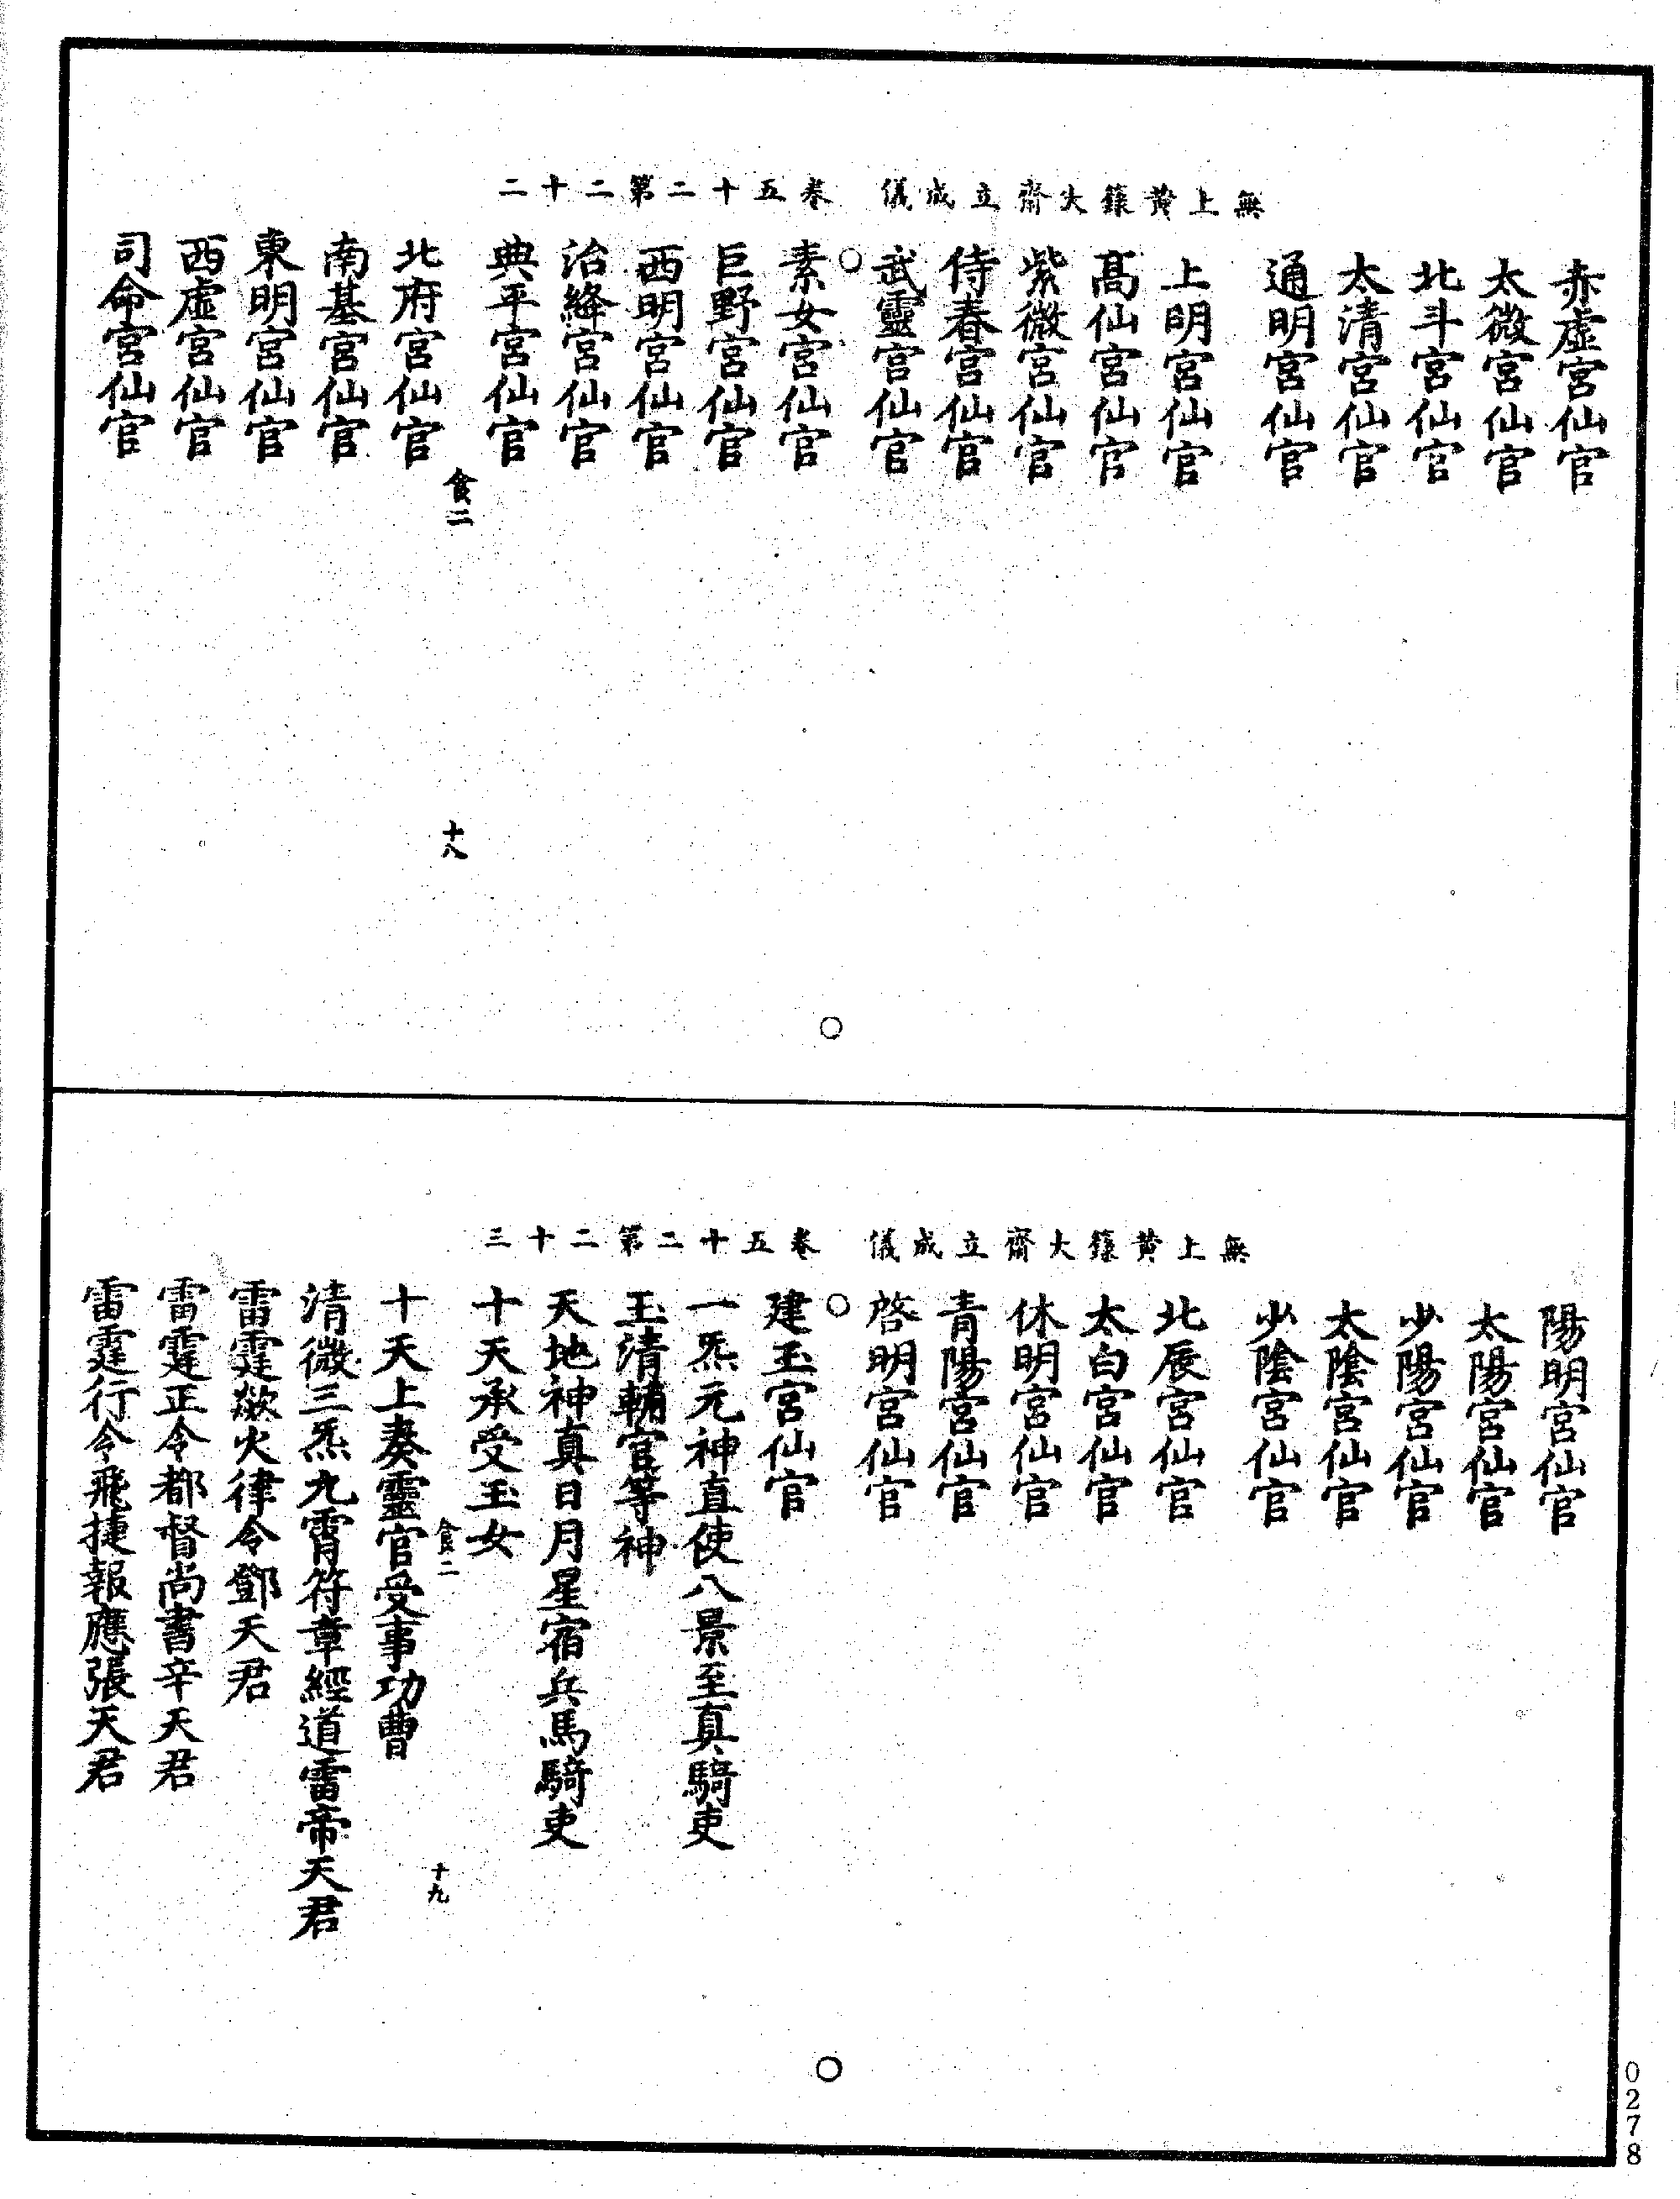 無上黃籙大齋立成儀 卷五十二第二十二
赤虛宮仙官
太微宮仙官
北斗宮仙官
太清宮仙官
通明宮仙官
上明宮仙官
髙仙宮仙官
紫微宮仙官
侍春宮仙官
武靈宮仙官
素女宮仙官
巨野宮仙官
西明宮仙官
治絳宮仙官
典平宮仙官
食二 十八
北府宮仙官
南基宮仙官
東明宮仙官
西虛宮仙官
司命宮仙官
無上黃籙大齋立成儀 卷五十二第二十三
陽明宮仙官
太陽宮仙官
少陽宮仙官
太陰宮仙官
少陰宮仙官
北辰宮仙官
太白宮仙官
休明宮仙官
青陽宮仙官
啓明宮仙官
建玉宮仙官
一炁元神直使八景至真騎吏
玉清輔官等神
天地神真日月星宿兵馬騎吏
十天承受玉女
食二 十九
十天上奏靈官受事功曹
清微三炁九霄符章經道雷帝天君
雷霆歘火律令鄧天君
雷霆正令都督尚書辛天君
雷霆行令飛捷報應張天君
0278